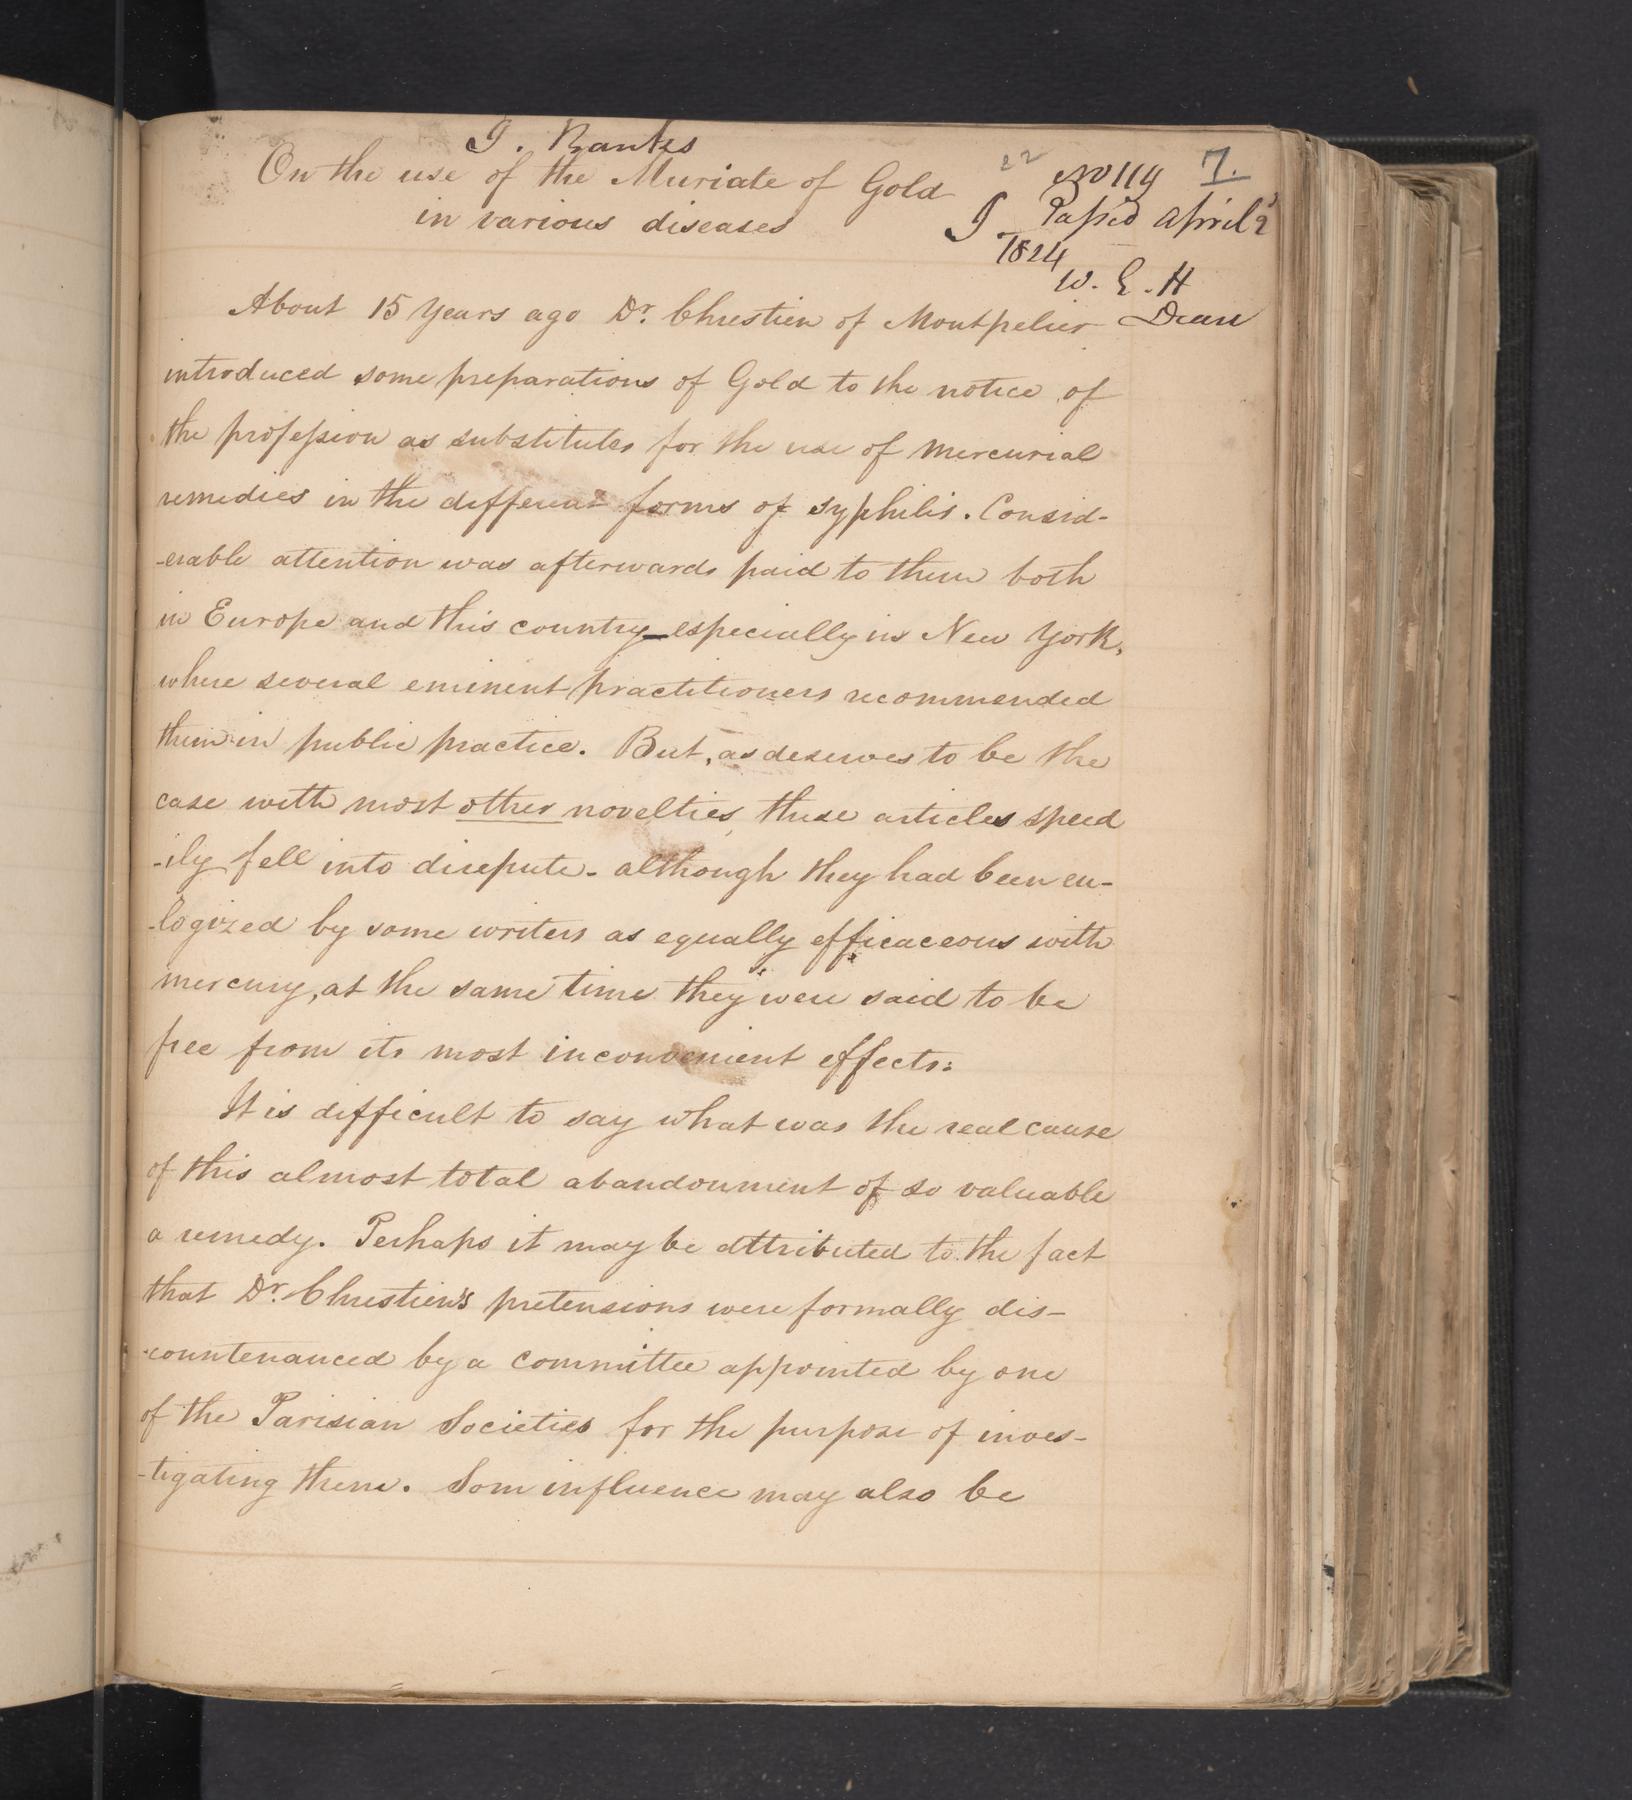 J. Bankes
On the use of the Muriate of Gold
in various diseases
22
No 119
7.
J Passed April 2
1824
W. E. H
Dean
About 15 Years ago Dr. Chrestien of Montpelier
introduced some preparations of Gold to the notice of
the profession as substitutes for the use of mercurial
remedies in the different forms of syphilis. Consid-
-erable attention was afterwards paid to them both
in Europe and this country_especially in New York,
where several eminent practitioners recommended
them in public practice. But, as deserves to be the
case with most other novelties, these articles speed
-ily fell into disepute. although they had been eu-
-logized by some writers as equally efficaceous with
mercury, at the same time they were said to be
free from its most inconvenient effects:
It is difficult to say what was the real cause
of this almost total abandonment of so valuable
a remedy. Perhaps it may be attributed to the fact
that Dr. Chrestien's pretensions were formally dis-
-countenanced by a committee appointed by one
of the Parisian Societies for the purpose of inves-
-tigating them. Som influence may also be